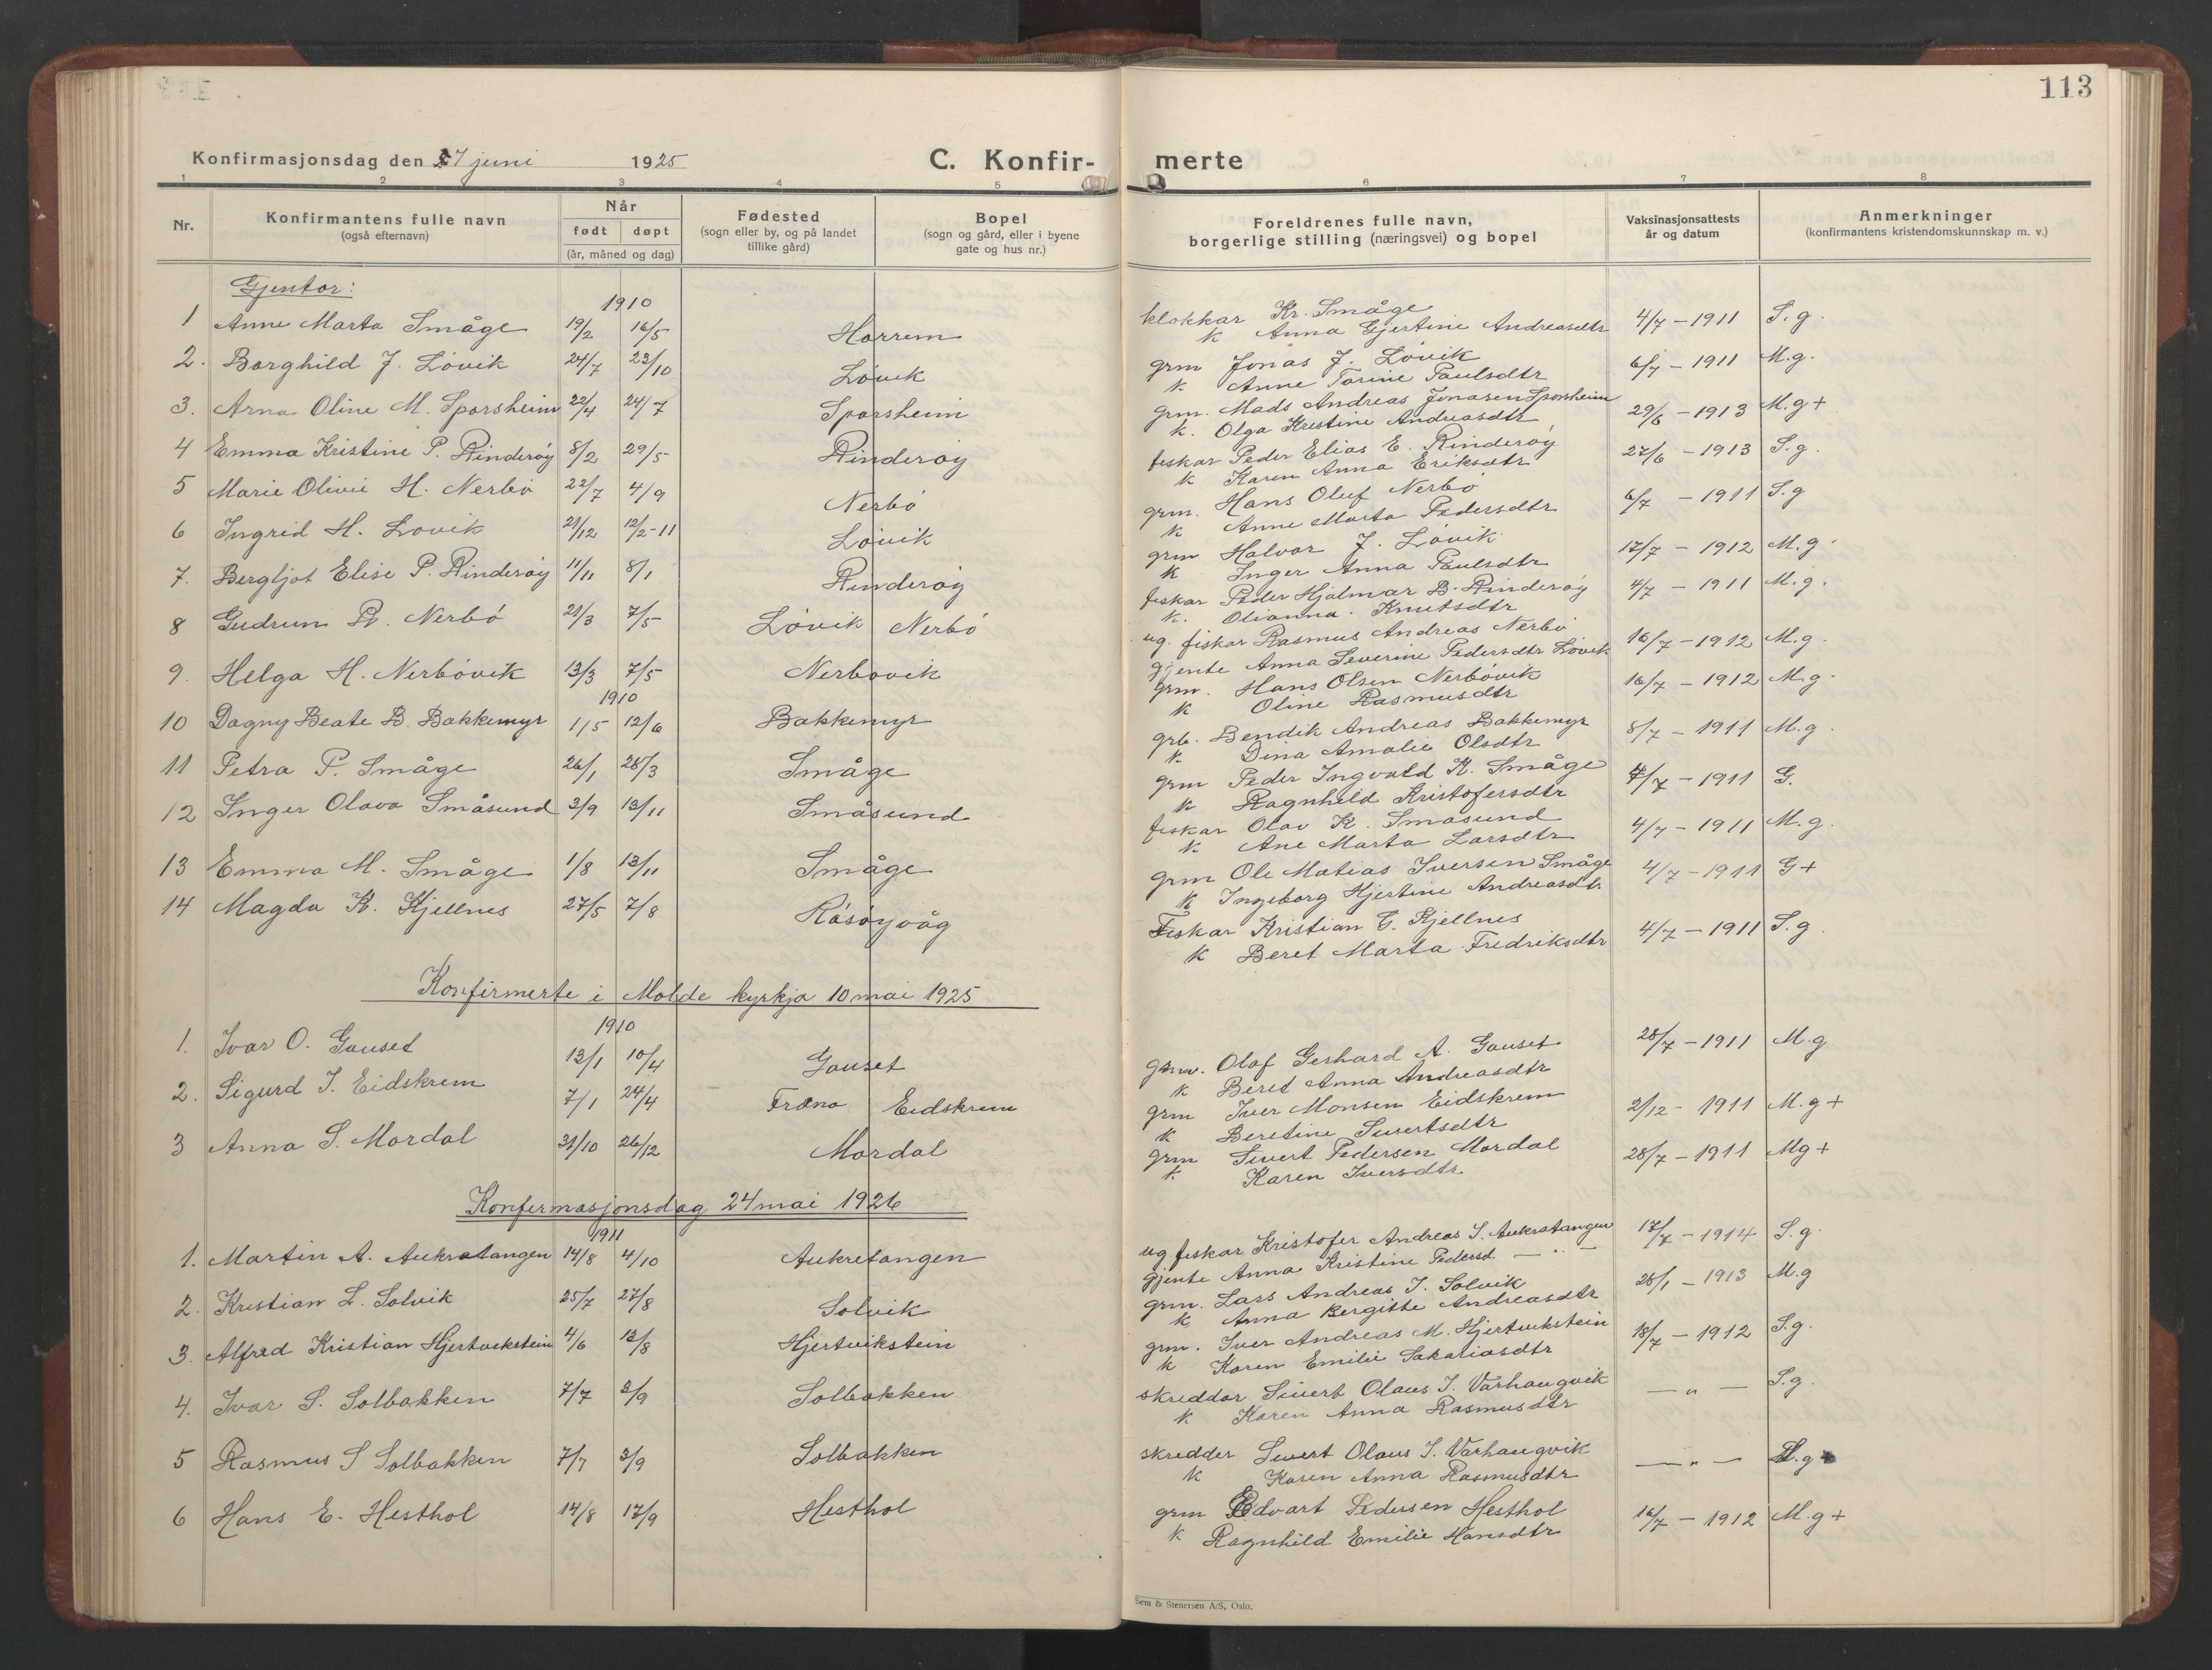 113
Konfirmasjonsdag den 7 juni 1925 C. Konfir- merte
1 2 3 4 5 6 7 8
Nr. Konfirmantens fulle navn (også efternavn) Når født døpt (år, måned og dag) Fødested (sogn eller by, og på landet tillike gård) Bopel (sogn og gård, eller i byene gate og hus nr.) Foreldrenes fulle navn, borgerlige stilling (næringsvei) og bopel Vaksinasjonsattests år og datum Anmerkninger (konfirmantens kristendomskunnskap m. v.)
Gjentor:
1910
1 Anne Marta Småge 19/2 16/5 Horrem klokkar Kr. Småge 4/7 - 1911 S.g.
k Anna Gjertine Andreasdtr
2. Borghild J. Løvik 24/7 23/10 Løvik grm Jonas J. Løvik 6/7 - 1911 M.g.
k Anne Torine Paulsdtr
3. Arna Oline M. Sporsheim 22/4 24/7 Sporsheim grm. Mads Andreas Jonasen Sporsheim 29/6 - 1913 M.g +
k. Olga Kristine Andreasdtr
4 Emma Kristine P. Rinderøy 8/2 29/5 Rinderøy fiskar Peder Elias E. Rinderøy 27/6 - 1913 S.g.
k Karen Anna Eriksdtr
5 Marie Olivie H. Nerbø 22/7 4/9 Nerbø grm. Hans Oluf Nerbø 6/7 - 1911 S.g
k Anne Marta Pedersdtr
6 Ingrid H. Løvik 21/12 12/2-11 Løvik grm Halvor J. Løvik 17/7 - 1912 M.g.
k Inger Anna Paulsdtr
7. Bergljot Elise P. Rinderøy 11/11 8/1 Rinderøy fiskar Peder Hjalmar B. Rinderøy 4/7 - 1911 M.g.
k. Olianna Knutsdtr
8 Gudrun R. Nerbø 21/3 7/5 Løvik Nerbø ug. fiskar Rasmus Andreas Nerbø 16/7 - 1912 M.g.
gjente Anna Severine Pedersdtr Løvik
9. Helga H. Nerbøvik 13/3 7/5 Nerbøvik grm. Hans Olsen Nerbøvik 16/7 - 1912 M.g.
k Oline Rasmusdtr
1910
10 Dagny Beate B. Bakkemyr 1/5 12/6 Bakkemyr grb. Bendik Andreas Bakkemyr 8/7 - 1911 M.g.
k. Dina Amalie Olsdtr
11 Petra P. Småge 26/1 28/3 Småge grm Peder Ingvald K. Småge 7/7 - 1911 G.
k Ragnhild Kristofersdtr
12 Inger Olava Småsund 3/9 13/11 Småsund fiskar Olav K. Småsund 4/7 - 1911 M.g.
k Ane Marta Larsdtr
13 Emma M. Småge 1/8 13/11 Småge grm Ole Matias Iversen Småge 4/7 - 1911 G+
k Ingeborg Hjertine Andreasdt.
14 Magda K. Kjellnes 27/5 7/8 Råsøyvåg Fiskar Kristian G. Kjellnes 4/7 - 1911 S.g.
k Beret Marta Fredriksdtr
Konfirmerte i Molde kyrkja 10 mai 1925
1910
1. Ivar O. Gauset 13/1 10/4 Gauset grm. Olaf Gerhard A. Gauset 28/7 - 1911 M.g
k Beret Anna Andreasdtr
2. Sigurd I. Eidskrem 7/1 24/4 Fræna Eidskrem grm Iver Monsen Eidskrem 2/12 - 1911 M.g +
k Beretine Sivertsdtr
3 Anna S. Mordal 31/10 26/12 Mordal grm Sivert Pedersen Mordal 28/7 - 1911 Mg +
k. Karen Iversdtr
Konfirmasjonsdag 24 mai 1926
1911
1. Martin A. Aukratangen 14/8 4/10 Aukretangen ug. fiskar Kristofer Andreas S. Aukratangen 17/7 - 1914 S.g.
gjente Anna Kristine Pedersd. — " —
2. Kristian L. Solvik 25/7 27/8 Solvik grm. Lars Andreas I. Solvik 28/1 - 1913 M.g
k Anna Bergitte Andreasdtr
3. Alfred Kristian Hjertvikstein 4/6 13/8 Hjertvikstein grm. Iver Andreas M. Hjertvikstein 18/7 - 1912 S.g.
k Karen Emilie Sakariasdtr
4. Ivar S. Solbakken 7/7 3/9 Solbakken skreddar Sivert Olaus I. Varhaugvik — " — S.g.
k Karen Anna Rasmusdtr
5 Rasmus S Solbakken 7/7 3/9 Solbakken skredder Sivert Olaus I. Varhaugvik — " —
k Karen Anna Rasmusdtr
6 Hans E. Hesthol 14/8 17/9 Hesthol grm Edvart Pedersen Hesthol 16/7 - 1912 M.g +
k Ragnhild Emilie Hansdtr
Sem & Stenersen A/S, Oslo.